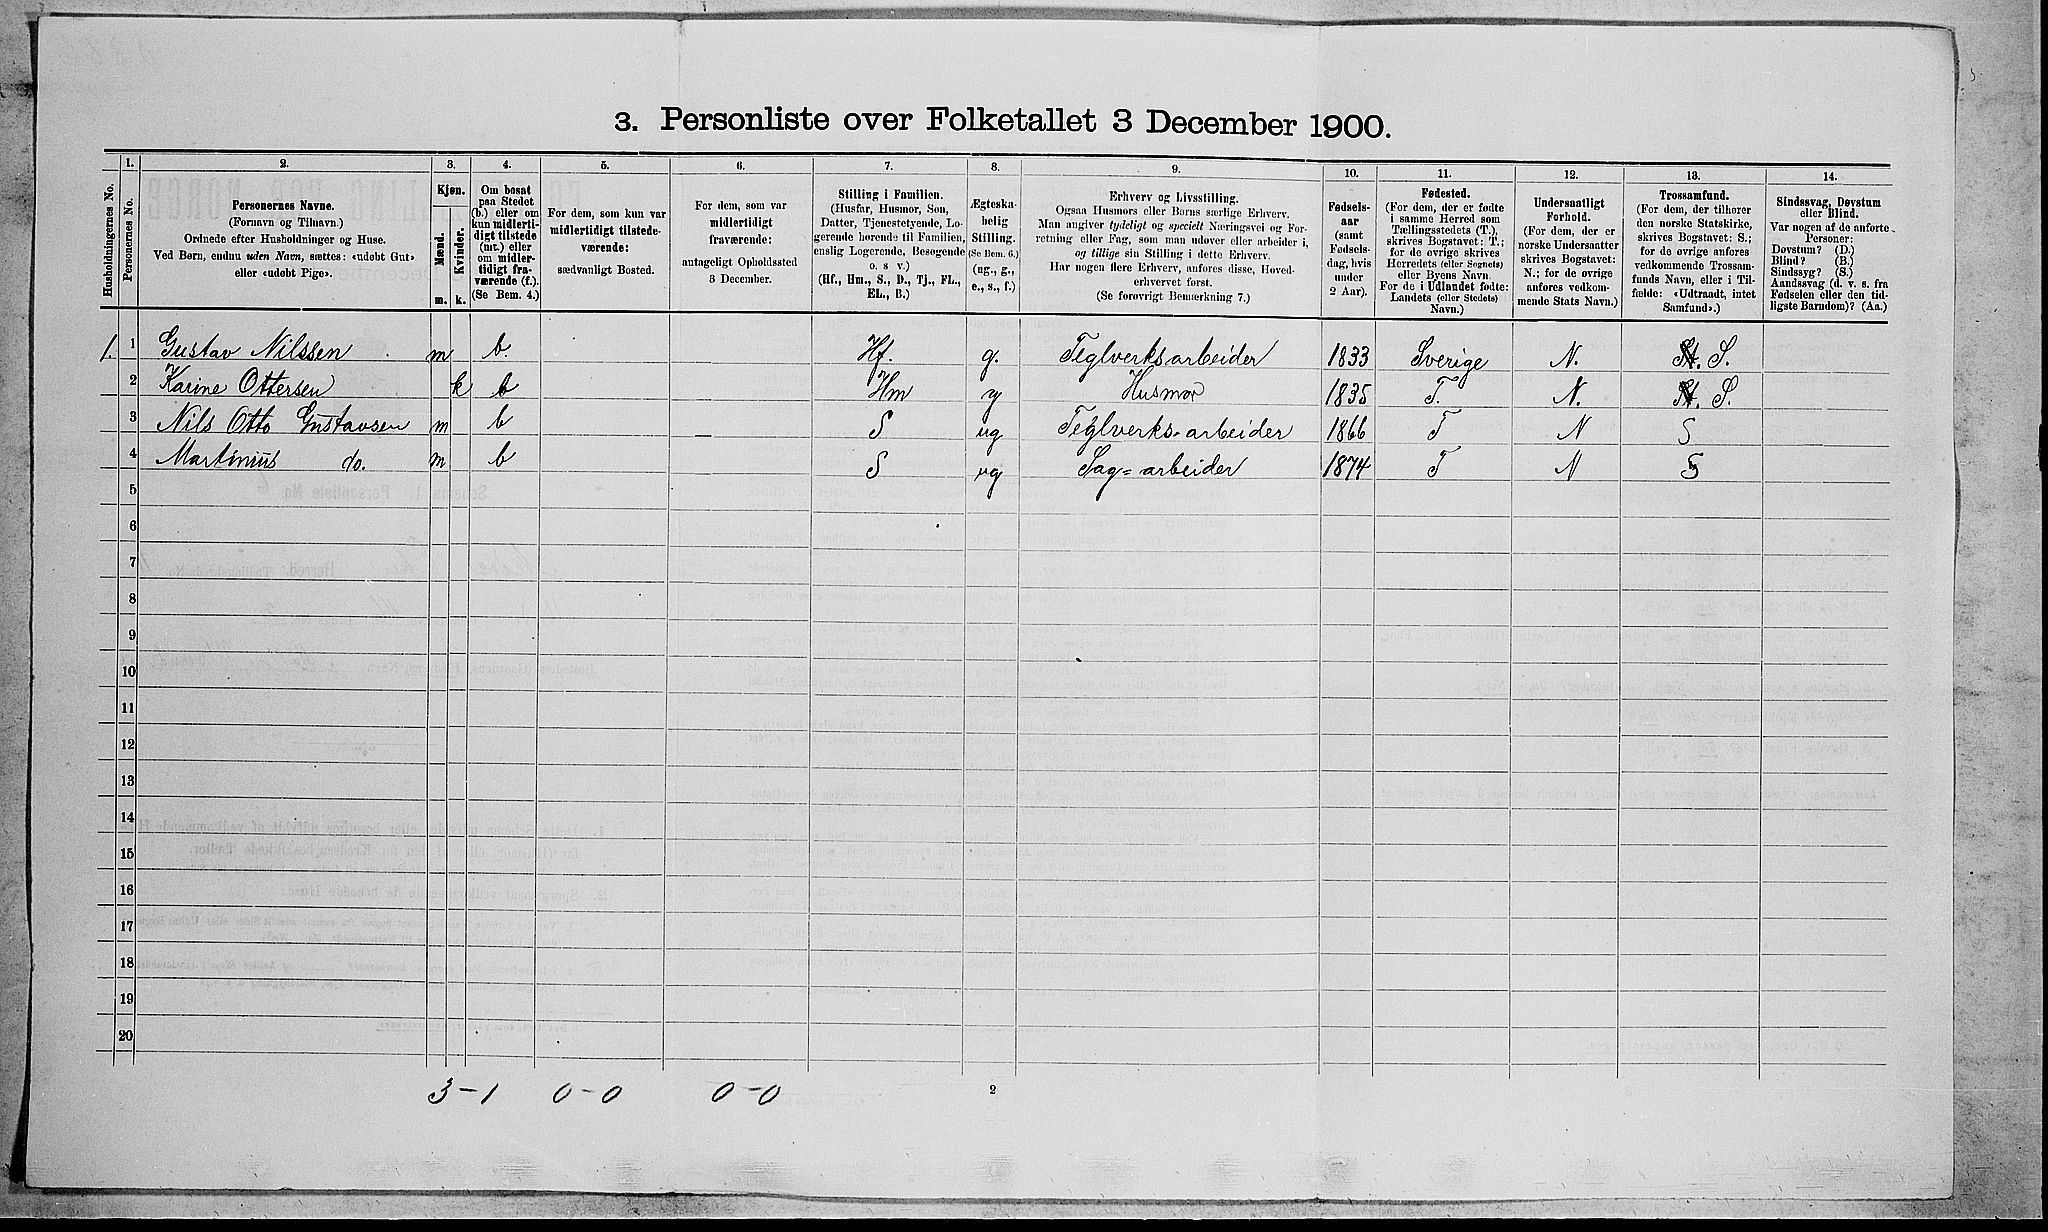 3. Personliste over Folketallet 3 December 1900.
Husholdningernes No.
1.
Personernes No.
2.
Personernes Navne.
(Fornavn og Tilnavn.)
Ordnede efter Husholdninger og Huse.
Ved Børn, endnu uden Navn, sættes: «udøbt Gut»
eller «udøbt Pige».
3.
Kjøn.
Mænd.
Kvinder.
m.
k.
4.
Om bosat
paa Stedet
(b.) eller om
kun midlerti-
digt tilstede
(mt.) eller
om midler-
tidigt fra-
værende (f.).
(Se Bem. 4.)
5.
For dem, som kun var
midlertidigt tilstede-
værende:
sædvanligt Bosted.
6.
For dem, som var
midlertidigt
fraværende:
antageligt Opholdssted
3 December.
7.
Stilling i Familien.
(Husfar, Husmor, Søn,
Datter, Tjenestetyende, Lo-
gerende hørende til Familien,
enslig Logerende, Besøgende
o. s. v.)
(Hf., Hm., S., D., Tj., FL.,
EL., B.)
8.
Ægteska-
belig
Stilling.
(Se Bem. 6.)
(ug., g.,
e., s., f.)
9.
Erhverv og Livsstilling.
Ogsaa Husmors eller Børns særlige Erhverv.
Man angiver tydeligt og specielt Næringsvei og For-
retning eller Fag, som man udøver eller arbeider i,
og tillige sin Stilling i dette Erhverv.
Har nogen flere Erhverv, anføres disse, Hoved-
erhvervet først.
(Se forøvrigt Bemærkning 7.)
10.
Fødsels-
aar
(samt
Fødsels-
dag, hvis
under
2 Aar).
11.
Fødested.
(For dem, der er fødte
i samme Herred som
Tællingsstedets (T.),
skrives Bogstavet: T.;
for de øvrige skrives
Herredets (eller Sognets)
eller Byens Navn.
For de i Udlandet fødte:
Landets (eller Stedets)
Navn.)
12.
Undersaatligt
Forhold.
(For dem, der er
norske Undersaatter
skrives Bogstavet:
N.; for de øvrige
anføres vedkom-
mende Stats Navn.)
13.
Trossamfund.
(For dem, der tilhører
den norske Statskirke,
skrives Bogstavet: S.;
for de øvrige anføres
vedkommende Trossam-
funds Navn, eller i Til-
fælde: «Udtraadt, intet
Samfund».)
14.
Sindssvag, Døvstum
eller Blind.
Var nogen af de anførte
Personer:
Døvstum? (D.)
Blind? (B.)
Sindssyg? (S.)
Aandssvag (d. v. s. fra
Fødselen eller den tid-
ligste Barndom)? (Aa.)
1. 1 Gustav Nilssen m b. Hf. g. Teglverksarbeider 1833 Sverige N. S.
2 Karine Ottersen k b Hm g Husmor 1835 T. N. S.
3 Nils Otto Gustavsen m b S ug Teglverks-arbeider 1866 T N S
4 Martinius do. m b S ug Sag=arbeider 1874 T N S
5
6
7
8
9
10
11
12
13
14
15
16
17
18
19
20
3-1 0-0 0-0 2